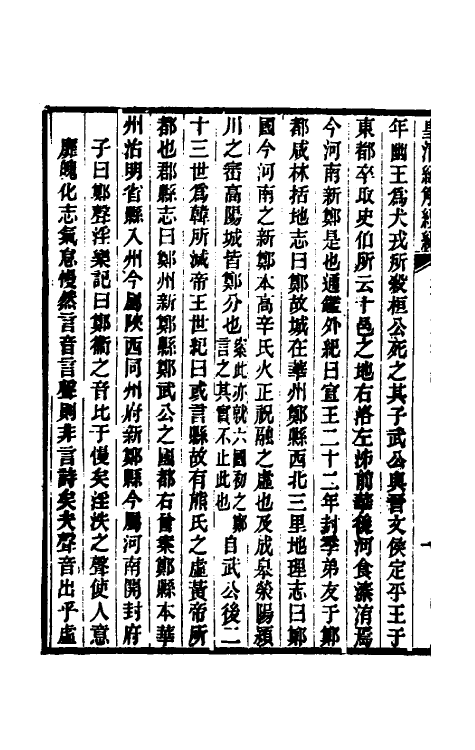 皇清經解續編
年幽王爲犬戎所殺桓公死之其子武公與晉文侯定平王于
東都卒取史伯所云十邑之地右洛左泲前華後河食溱洧焉
今河南新鄭是也通鑑外紀曰宣王二十二年封季弟友于鄭
都咸林括地志曰鄭故城在華州鄭縣西北三里地理志曰鄭
國今河南之新鄭本高辛氏火正祝融之虛也及成皋滎陽潁
川之崈高陽城皆鄭分也案此亦就六國初之鄭言之其實不止此也自武公後二
十三世爲韓所滅帝王世紀曰或言縣故有熊氏之虛黃帝所
都也郡縣志曰鄭州新鄭縣鄭武公之國都右曾案鄭縣本華
州治明省縣入州今屬陝西同州府新鄭縣今屬河南開封府
子曰鄭聲淫樂記曰鄭衞之音比于慢矣淫泆之聲使人意
靡魄化志氣怠慢然言音言聲則非言詩矣夫聲音出乎虛